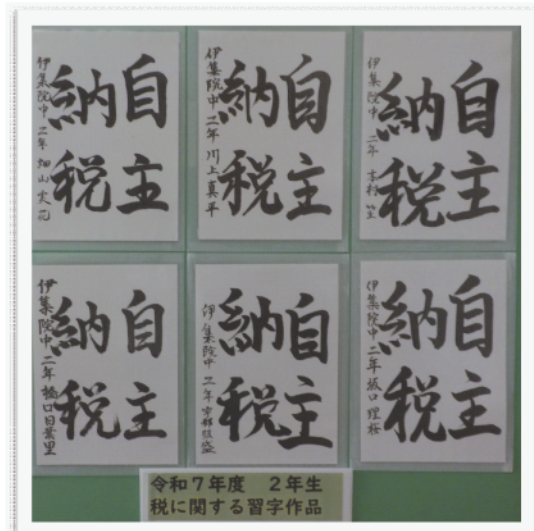 自主
納税
伊集院中 二年 畑山 実花
自主
納税
伊集院中 二年 川上真平
自主
納税
伊集院中 二年 本村
自主
納税
伊集院中 二年 樋口日葉里
自主
納税
伊集院中 二年 宇都
自主
納税
伊集院中 二年 坂口 理桜
令和7年度 2年生
税に関する習字作品